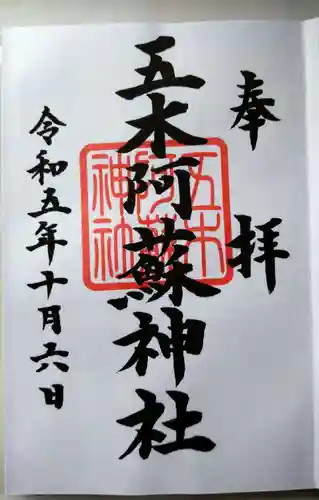 奉拝
五木阿蘇神社
令和五年十月六日
五木
阿蘇
神社